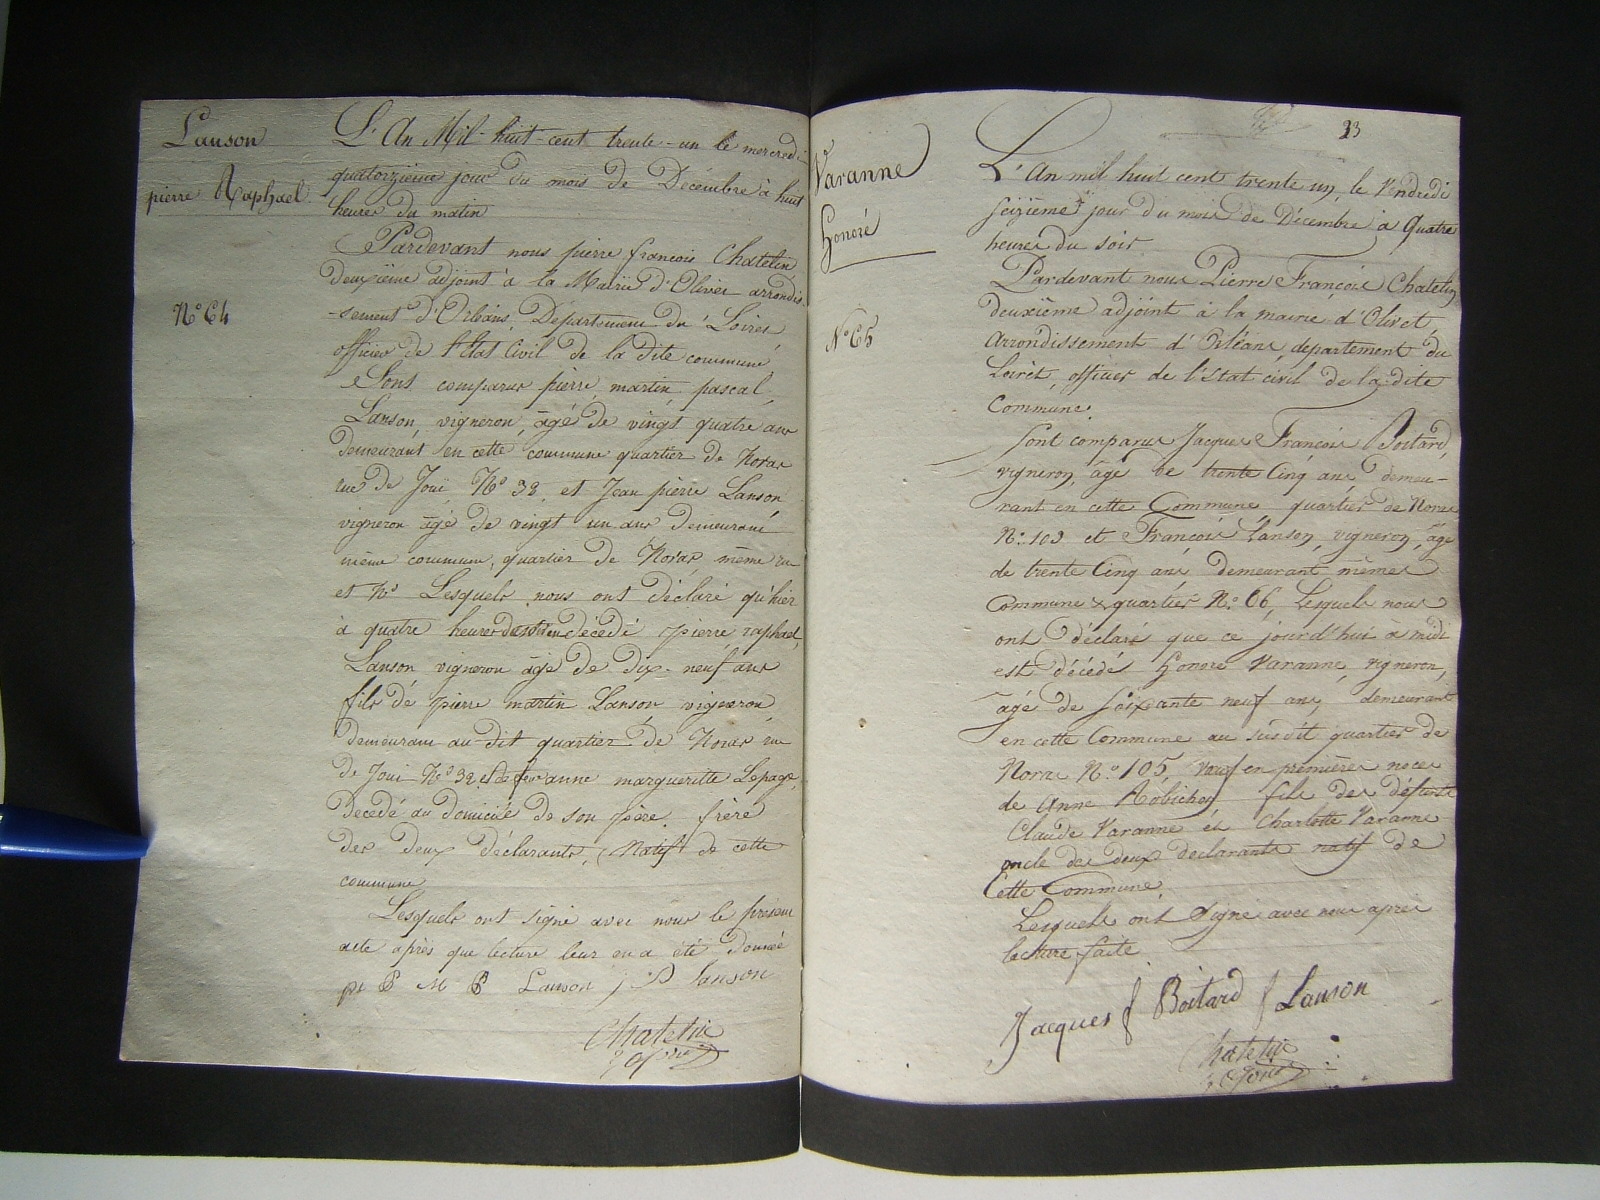 Lanson
pierre Raphael
N° 64
L'An Mil-huit-cent trente-un le mercredi
quatorzieme jour du mois de Décembre à huit
heures du matin
Pardevant nous pierre françois Chatelin
deuxieme adjoint à la Mairie d'Olivet arrondis-
-sement d'Orléans, Département du Loiret
officier de l'état Civil de la dite commune
Sont comparus pierre martin pascal
Lanson, vigneron, âgé de vingt quatre ans
demeurant en cette commune quartier de Noras
rue de Joui N° 38, et Jean pierre Lanson
vigneron âgé de vingt un ans demeurant
même commune, quartier de Noras même rue
et N° Lesquels nous ont déclaré qu'hier
à quatre heures du soir est décédé pierre raphael
Lanson vigneron âgé de dix-neuf ans
fils de pierre martin Lanson vigneron
demeurant au-dit quartier de Noras rue
de Joui N° 38 et de feu anne margueritte Lepage
Décédé au domicile de son père. frère
des deux déclarants, Natif de cette
commune
Lesquels ont signé avec nous le présent
acte après que lecture leur en a été donnée
M Lanson j P lanson
Chatelin
Varanne
Honoré
N° 65
33
L'An mil huit cent trente un, le Vendredi
seizième jour du mois de Décembre à Quatre
heures du soir
Pardevant nous Pierre François Chatelin
deuxième adjoint à la mairie d'Olivet,
Arrondissement d'Orléans, departement du
Loiret, officier de l'état civil de la dite
Commune.
Sont comparus Jacques François Boitard,
vigneron, âgé de trente Cinq ans demeu-
rant en cette Commune quartier de Noras
N° 103 et François Lanson, vigneron, âgé
de trente Cinq ans demeurant même
Commune & quartier N° 66, Lesquels nous
ont déclaré que ce jourd'hui à midi
est décédé honoré Varanne, vigneron,
âgé de soixante neuf ans, demeurant
en cette Commune au susdit quartier de
Noras N° 105, veuf en premières noces
de Anne Robichon fils des défunts
Claude Varanne et Charlotte Varanne
oncle des deux déclarants natif de
Cette Commune.
Lesquels ont signé avec nous après
lecture faite
Jacques f Boitard f Lanson
Chatelin